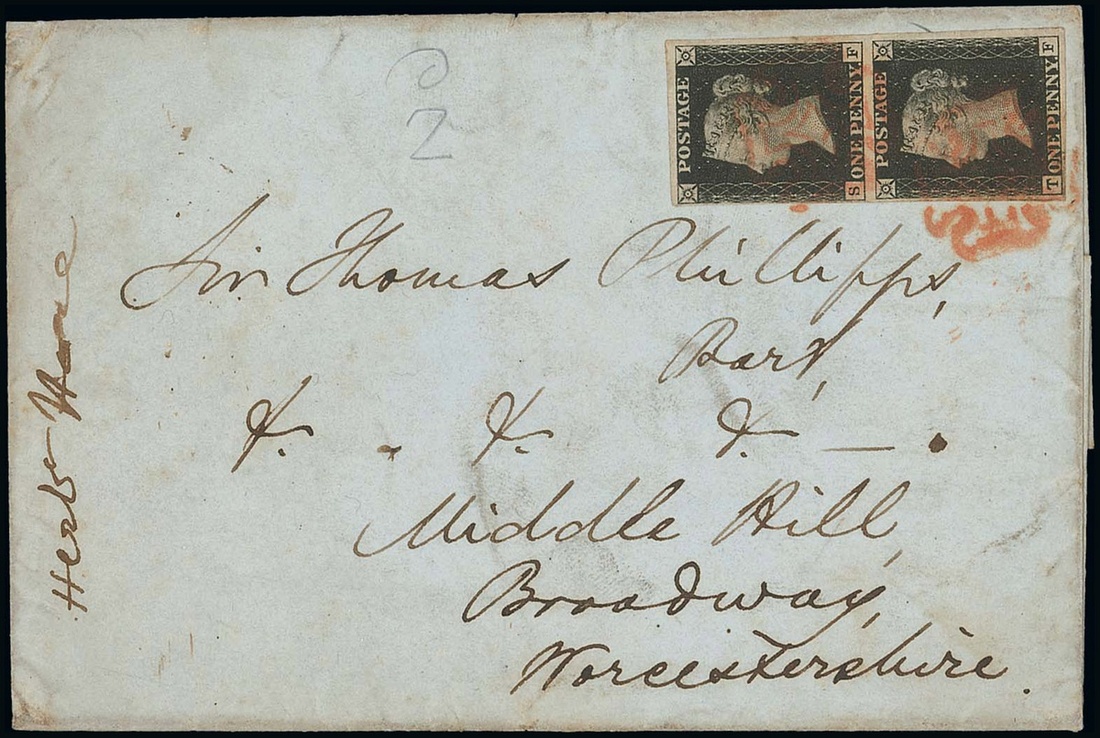 2
POSTAGE
S ONE PENNY F
POSTAGE
T ONE PENNY F
Sir Thomas Phillipps,
Bart,
&. . &. &. — .
Middle Hill,
Broadway,
Worcestershire.